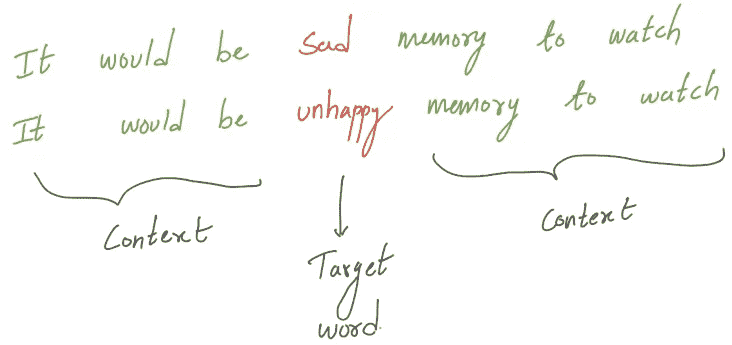 It would be sad memory to watch
It would be unhappy memory to watch
Context
Context
Target
word